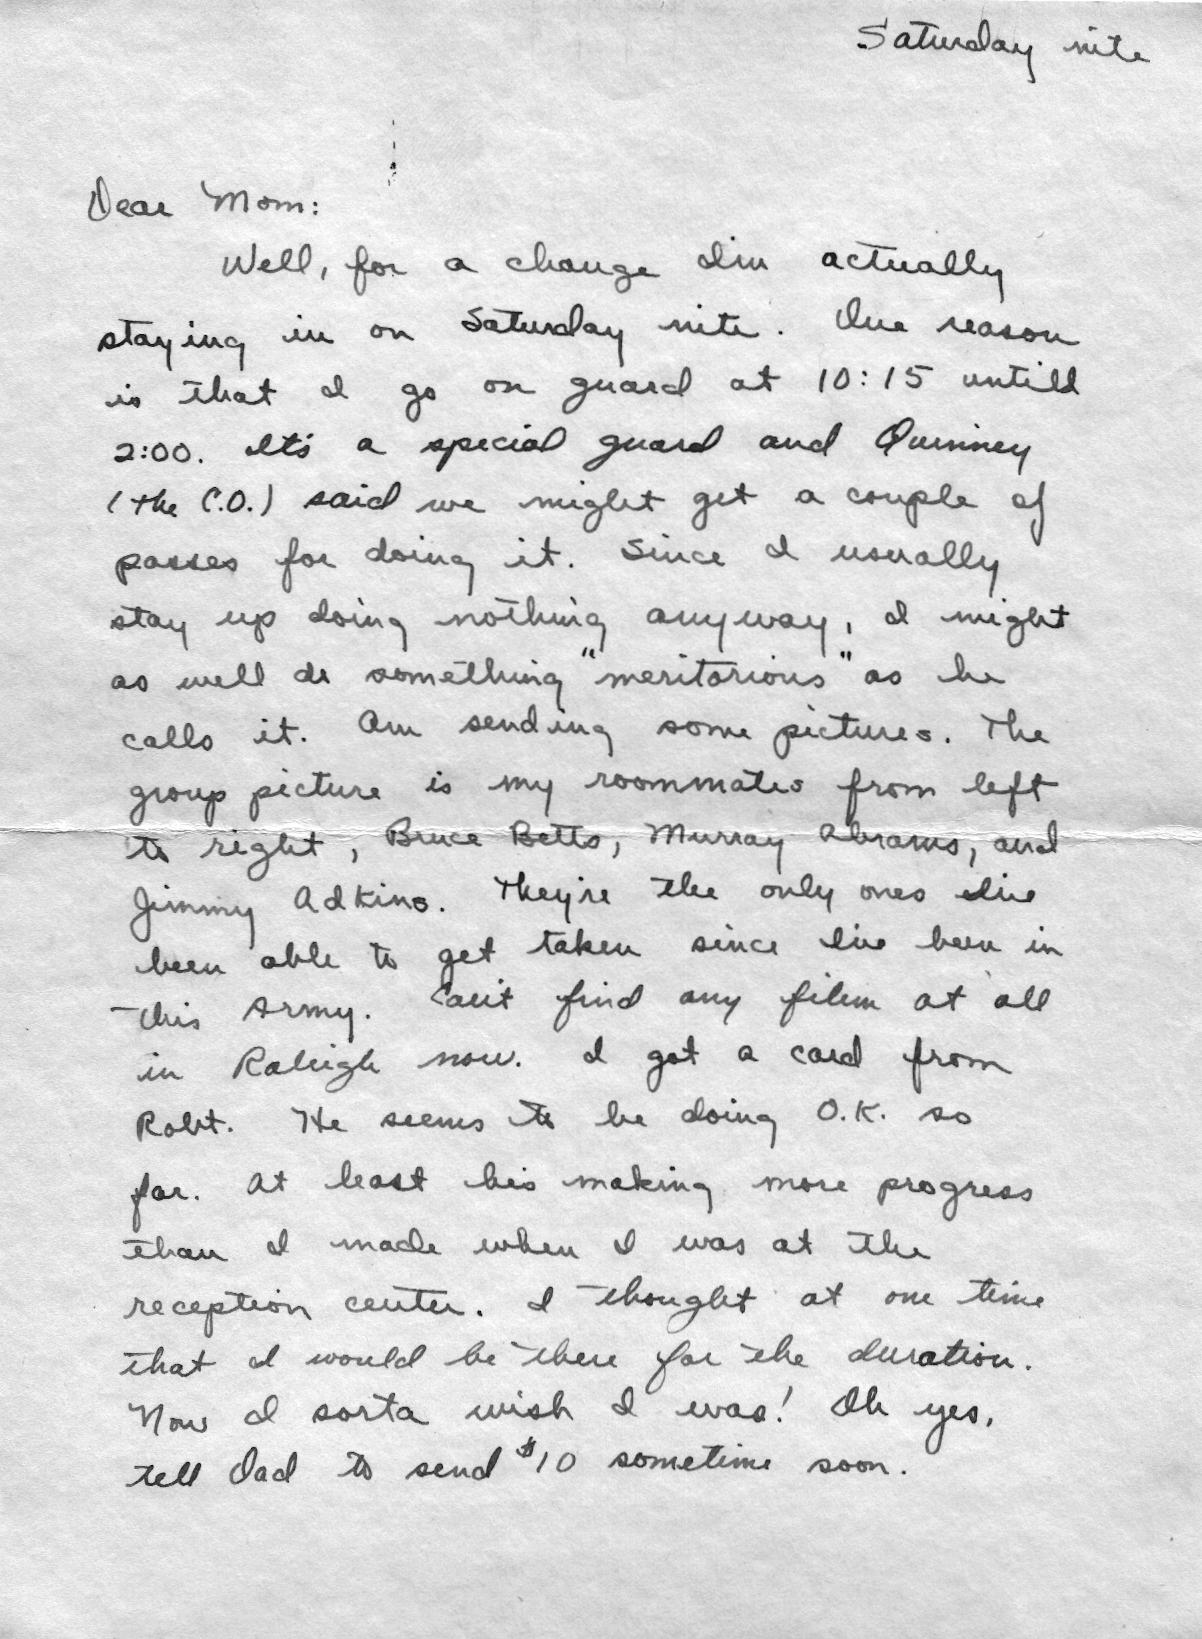 Saturday nite
Dear Mom:
Well, for a change I'm actually
staying in on Saturday nite. One reason
is that I go on guard at 10:15 untill
2:00. It's a special guard and Quinney
(the C.O.) said we might get a couple of
passes for doing it. Since I usually
stay up doing nothing anyway, I might
as well do something "meritorious" as he
calls it. Am sending some pictures. The
group picture is my roommates from left
to right, Bruce Betts, Murray Abrams, and
Jimmy Adkins. They're the only ones I've
been able to get taken since I've been in
this Army. Can't find any film at all
in Raleigh now. I got a card from
Robt. He seems to be doing O.K. so
far. At least he's making more progress
than I made when I was at the
reception center. I thought at one time
that I would be there for the duration.
Now I sorta wish I was! Oh yes,
tell Dad to send $10 sometime soon.